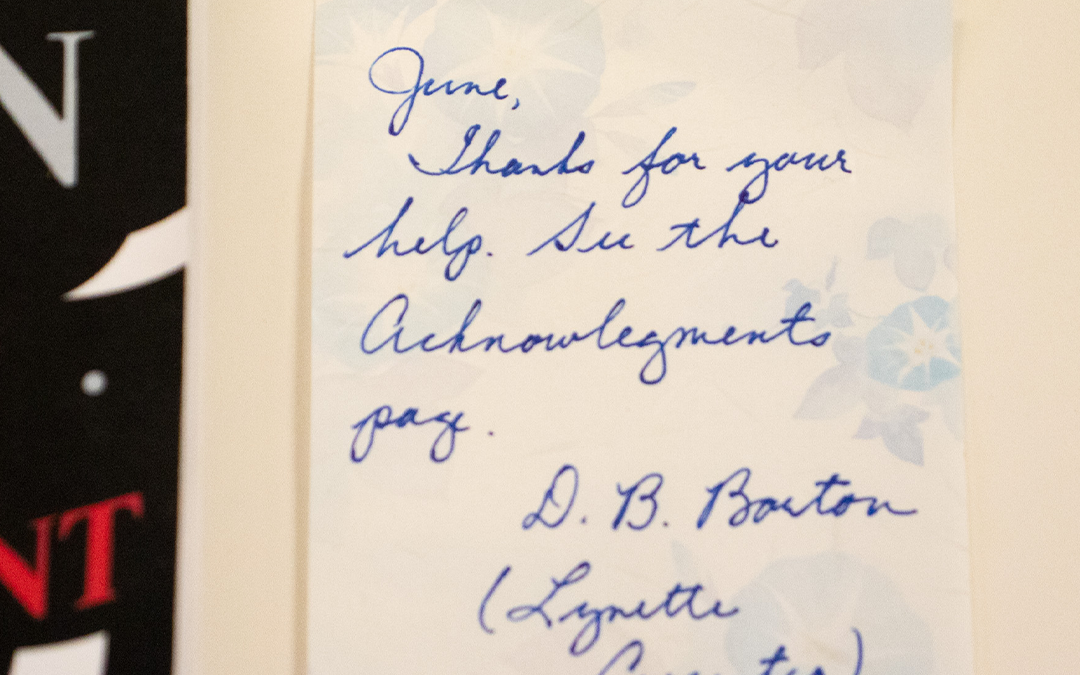 N
NT
June,
Thanks for your
help. See the
Acknowlegments
page.
D. B. Borton
(Lynette